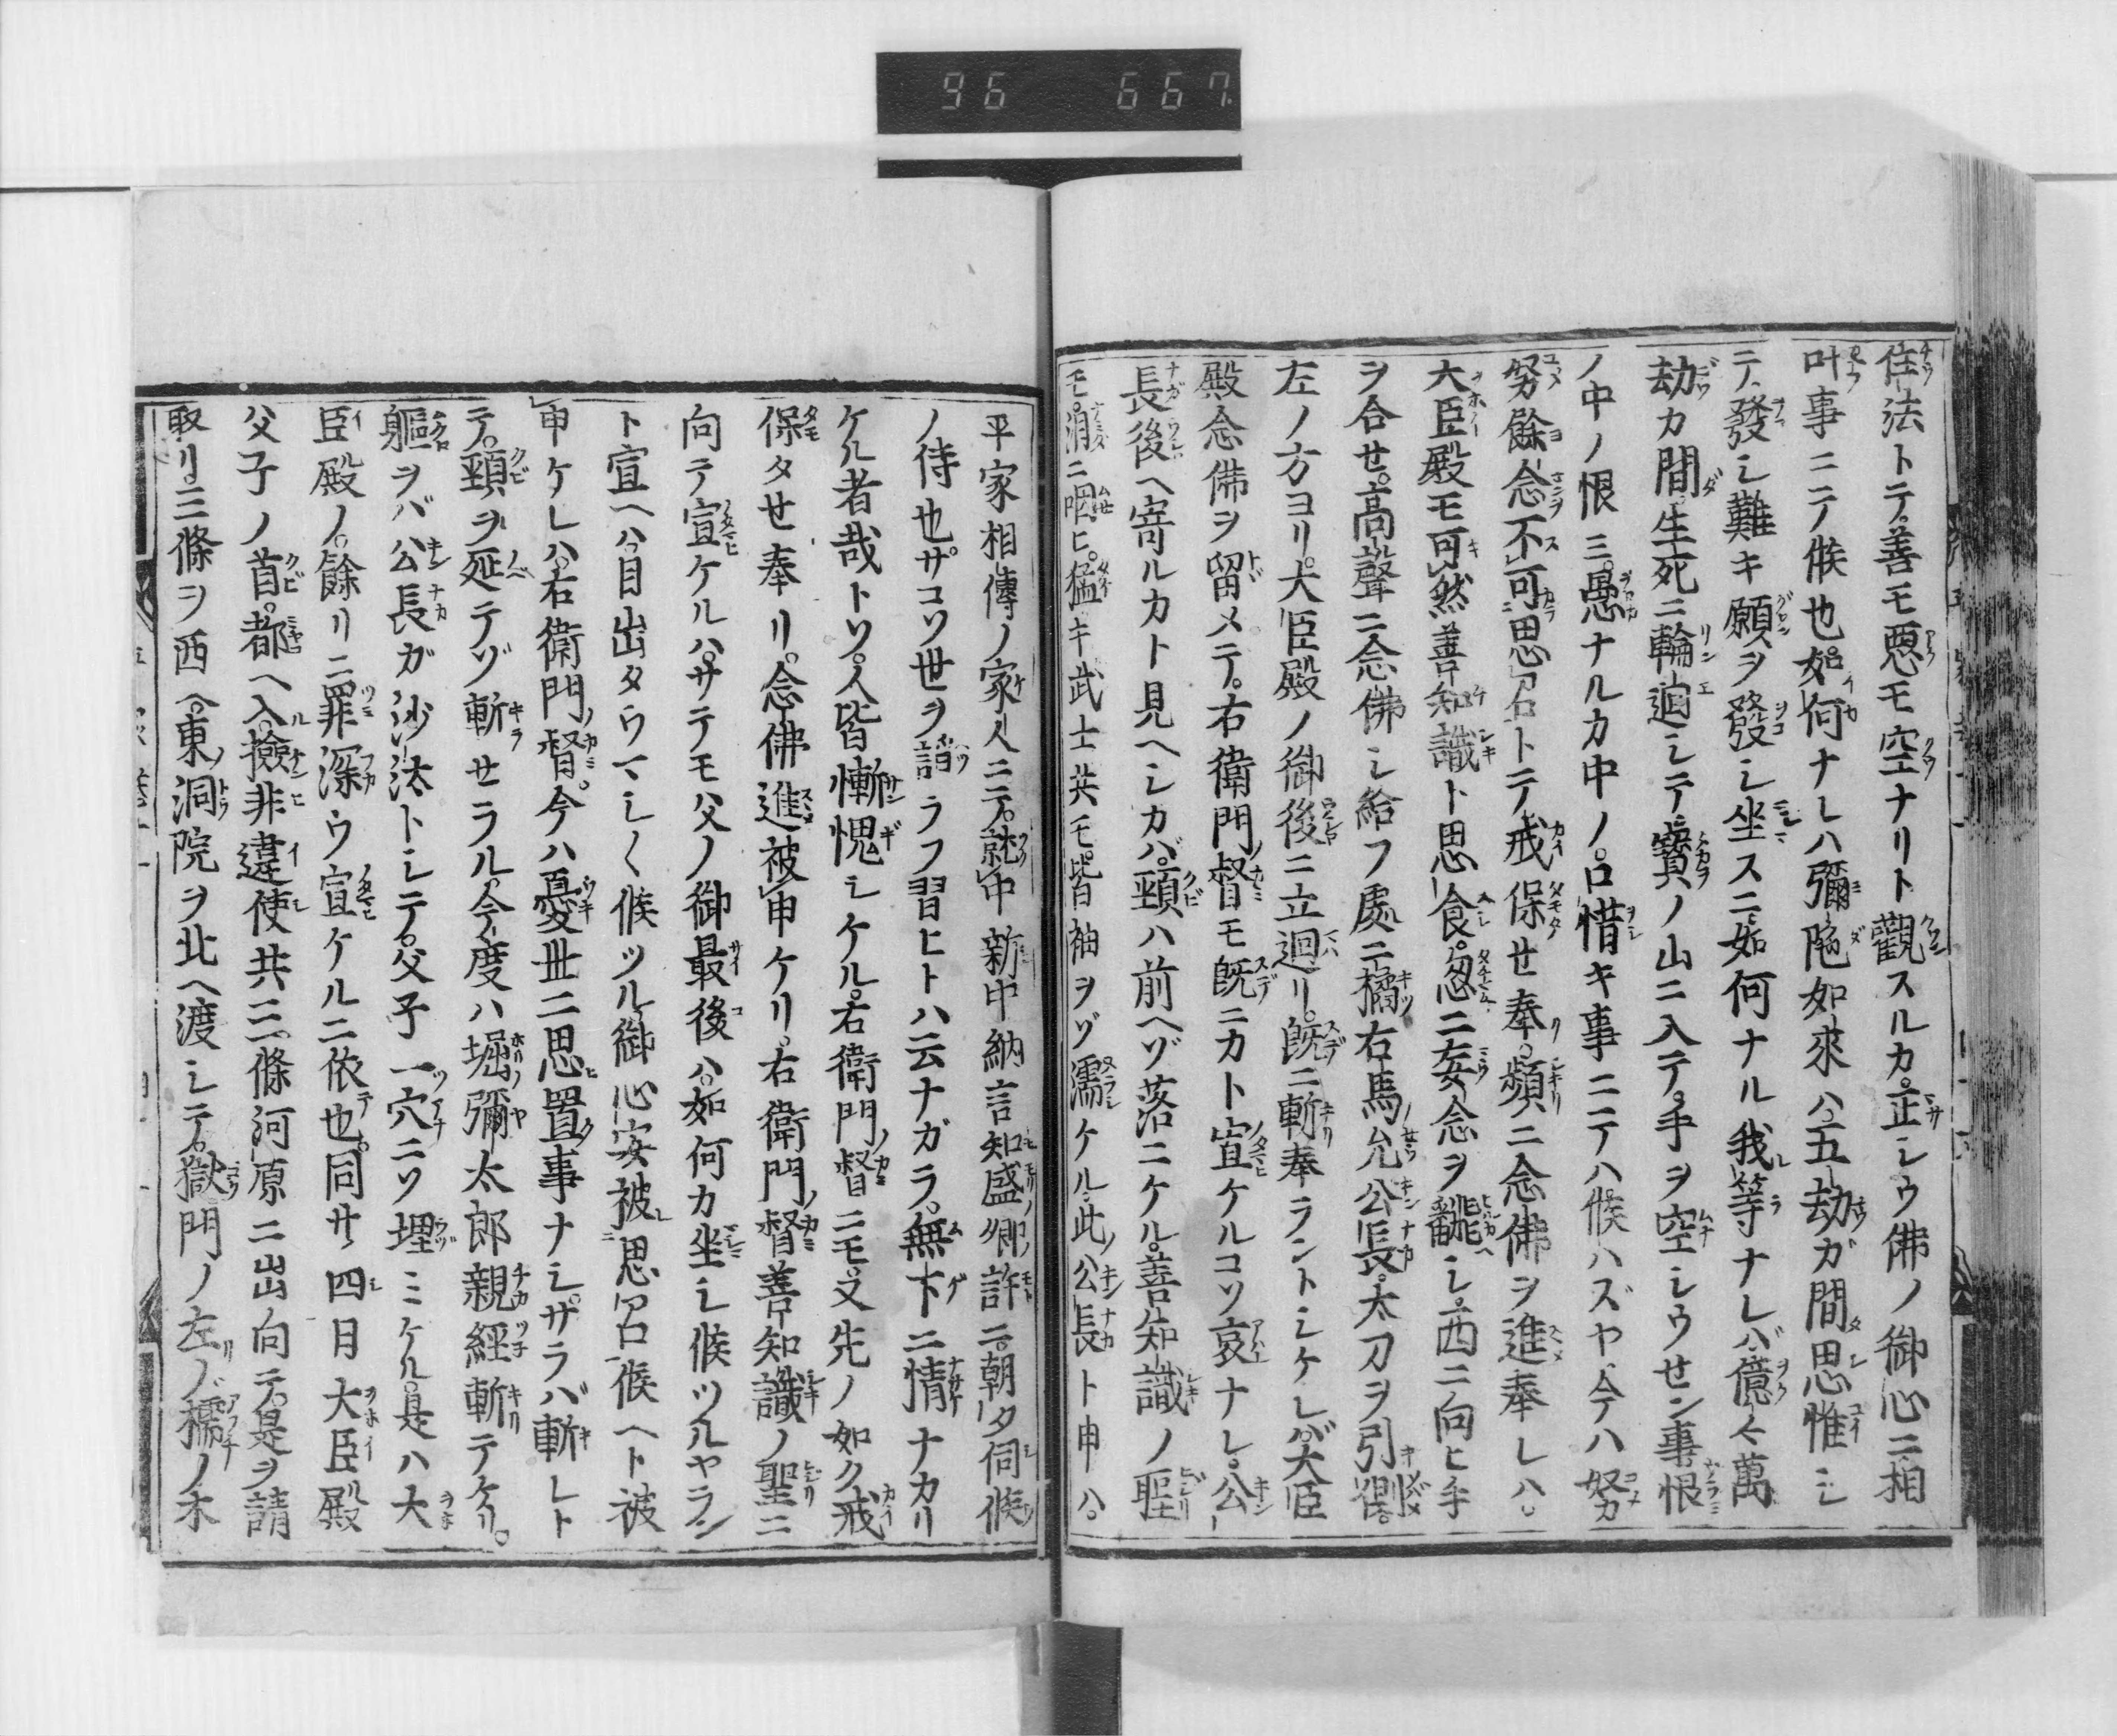 96 667
住法トテ善モ悪モ空ナリト觀スルカ。正シウ佛ノ御心ニ相
叶事ニテ候也。如何ナレハ彌陀如來ハ五劫ガ間思惟シ
テ發シ難キ願ヲ發シ坐スニ。如何ナル我等ナレバ億々萬
劫カ間。生死ニ輪廻シテ寶ノ山ニ入テ。手ヲ空シウせン事恨
ノ中ノ恨ミ。愚ナルカ中ノ。口惜キ事ニテハ候ハズヤ。今ハ努カ
努餘念不可思召トテ戒保せ奉リ。頻ニ念佛ヲ進奉レハ。
大臣殿モ可然善知識ト思食。忽ニ妄念ヲ飜シ。西ニ向ヒ手
ヲ合せ。高聲ニ念佛シ給フ處ニ橘右馬允公長。太刀ヲ引側。
左ノ方ヨリ。大臣殿ノ御後ニ立迴リ。既ニ斬奉ラントシケレバ。大臣
殿念佛ヲ留メテ。右衛門督モ既ニカト宣ケルコソ哀ナレ。公
長後ヘ寄ルカト見ヘシカバ。頸ハ前ヘゾ落ニケル。善知識ノ聖
モ。涙ニ咽ヒ。猛キ武士共モ。皆袖ヲゾ濡ケル。此公長ト申ハ。
平家相傳ノ家人ニテ。就中新中納言知盛卿ノ許ニ。朝夕伺候
ノ侍也。サコソ世ヲ諂ラフ習ヒトハ云ナガラ。無下ニ情ナカリ
ケル者哉トソ。人皆慚愧シケル。右衛門督ニモ又先ノ如ク戒
保タせ奉リ。念佛進被申ケリ。右衛門督善知識ノ聖ニ
向テ宣ケルハ。サテモ父ノ御最後ハ。如何カ坐シ候ツルヤラン
ト宣ヘハ。目出タウマシ〱候ツル。御心安被思召候ヘト被
申ケレハ。右衛門督。今ハ憂世ニ思置事ナシ。サラバ斬レト
テ。頸ヲ延テゾ斬せラル。今度ハ堀彌太郎親經斬テケリ。
軀ヲバ公長ガ沙汰トシテ。父子一穴ニソ埋ミケル。是ハ大
臣殿ノ。餘リニ罪深ウ宣ケルニ依也。同サ四月大臣殿
父子ノ首。都ヘ入。撿非違使共三條河原ニ出向テ。是ヲ請
取リ。三條ヲ西ヘ。東洞院ヲ北ヘ渡シテ。獄門ノ左ノ樗ノ木